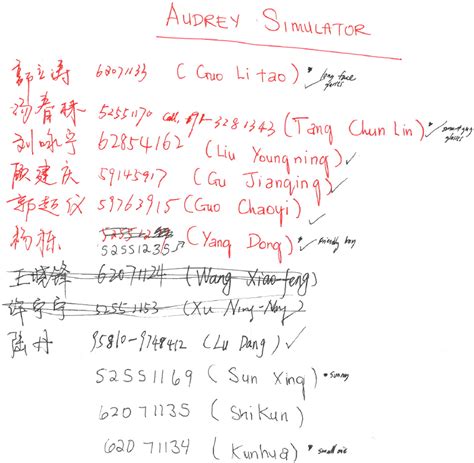 AUDREY SIMULATOR
郭立涛 62071133 (Guo Li tao) * long face
汤春林 52551170 Call. 3281343 (Tang Chun Lin)
刘咏宁 62854162 (Liu Youngning) ✓
顾建庆 59145917 (Gu Jianqing) ✓
郭超仪 59763915 (Guo Chaoyi) ✓
杨栋 52551235 (Yang Dong) ✓ * friendly boy
王晓锋 62071124 (Wang Xiao-feng)
许宁宁 52551153 (Xu Ning-Ning)
陆丹 95810-9748412 (Lu Dang) ✓
52551169 (Sun Xing) * sunny
62071135 (Shi Kun)
62071134 (Kunhua)